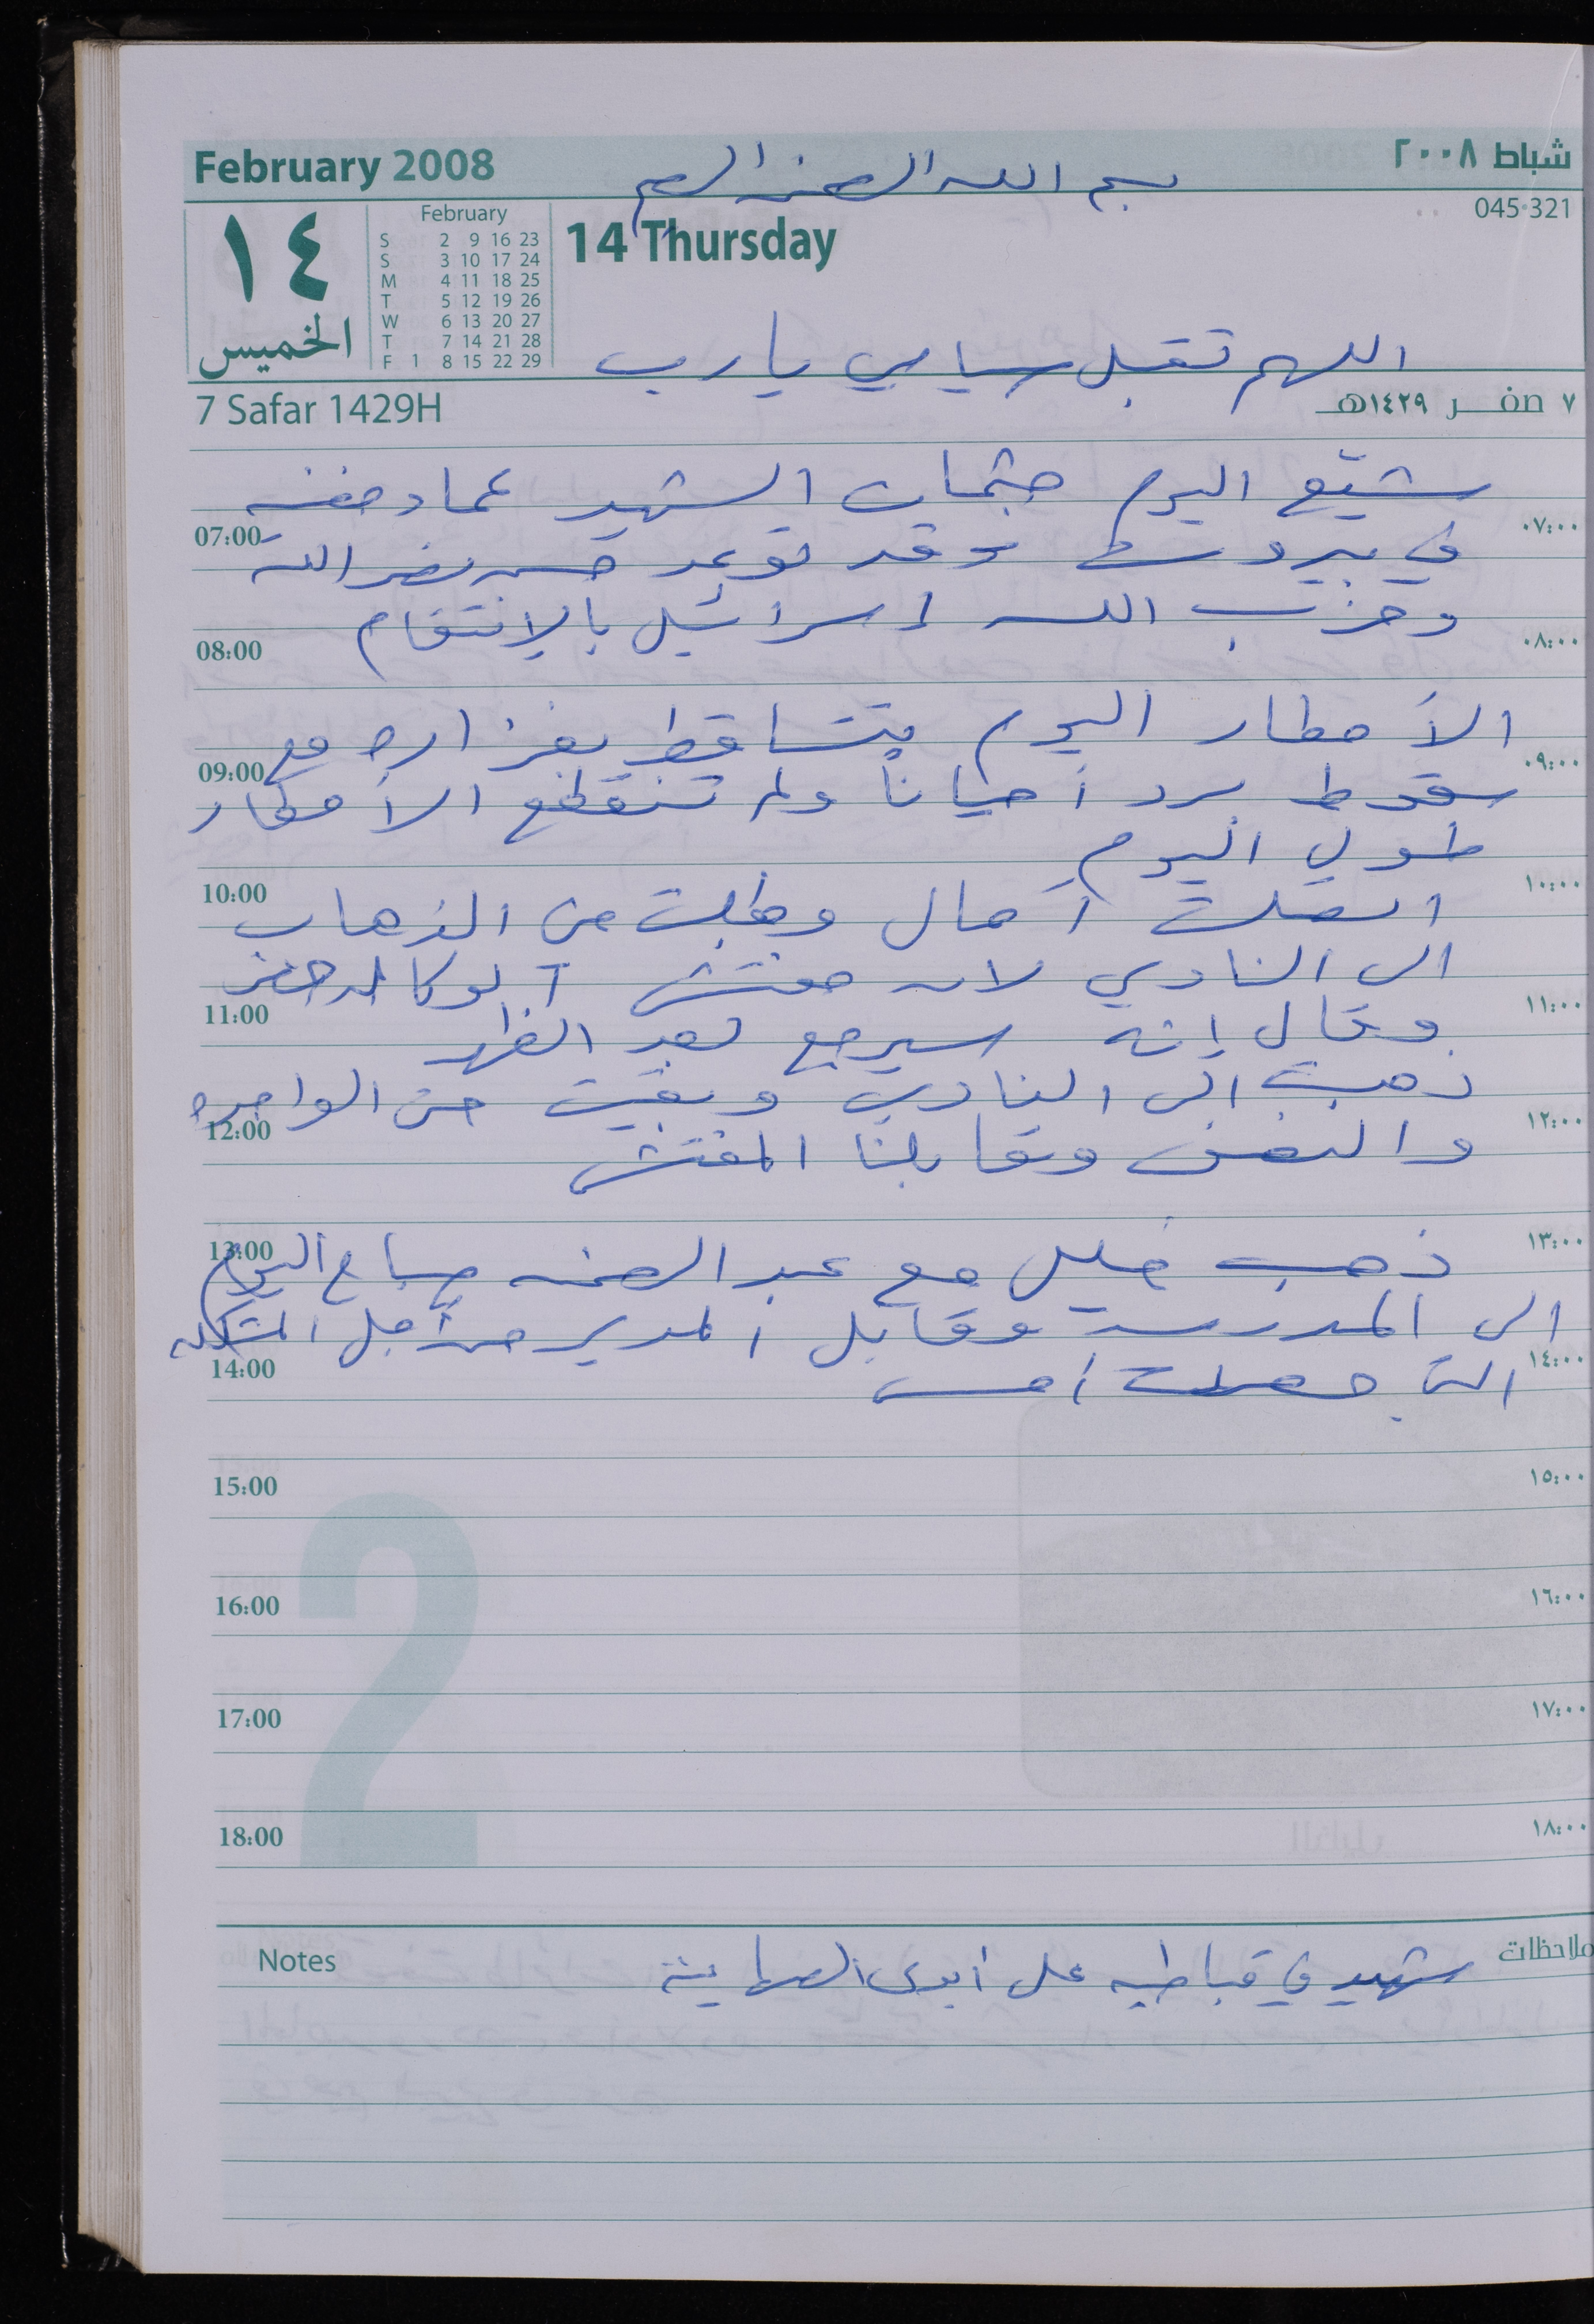 February 2008
شباط ٢٠٠٨
بسم الله الرحمن الرحيم
045-321
١٤
الخميس
February
S 2 9 16 23
S 3 10 17 24
M 4 11 18 25
T 5 12 19 26
W 6 13 20 27
T 7 14 21 28
F 1 8 15 22 29
14 Thursday
اللهم تقبل صيامي يا رب
7 Safar 1429H
٧ صفر ١٤٢٩هـ
شيّع اليوم جثمان الشهيد عماد مغنيه
07:00 ٠٧:٠٠
في بيروت وقد توعد حسن نصر الله
وحزب الله اسرائيل بالإنتقام
08:00 ٠٨:٠٠
الأمطار اليوم تتساقط بغزاره مع
09:00 ٠٩:٠٠
سقوط برد أحياناً ولم تنقطع الأمطار
طول اليوم
10:00 ١٠:٠٠
اتصلت آمال وطلبت من الذهاب
الى النادي لان مفتش
11:00 ١١:٠٠
وقال إنه سيرجع بعد الظهر
ذهبت الى النادي وبقيت حتى الواحده
12:00 ١٢:٠٠
والنصف وقابلنا المفتش
13:00 ١٣:٠٠
ذهب خليل مع عبد الرحمن صباح اليوم
الى المدرسة وقابل المدير من أجل المشكله
14:00 ١٤:٠٠
التي حصلت أمس
15:00 ١٥:٠٠
16:00 ١٦:٠٠
17:00 ١٧:٠٠
18:00 ١٨:٠٠
2
Notes
ملاحظات
شهيد في قباطيه على أيدي الصهاينة